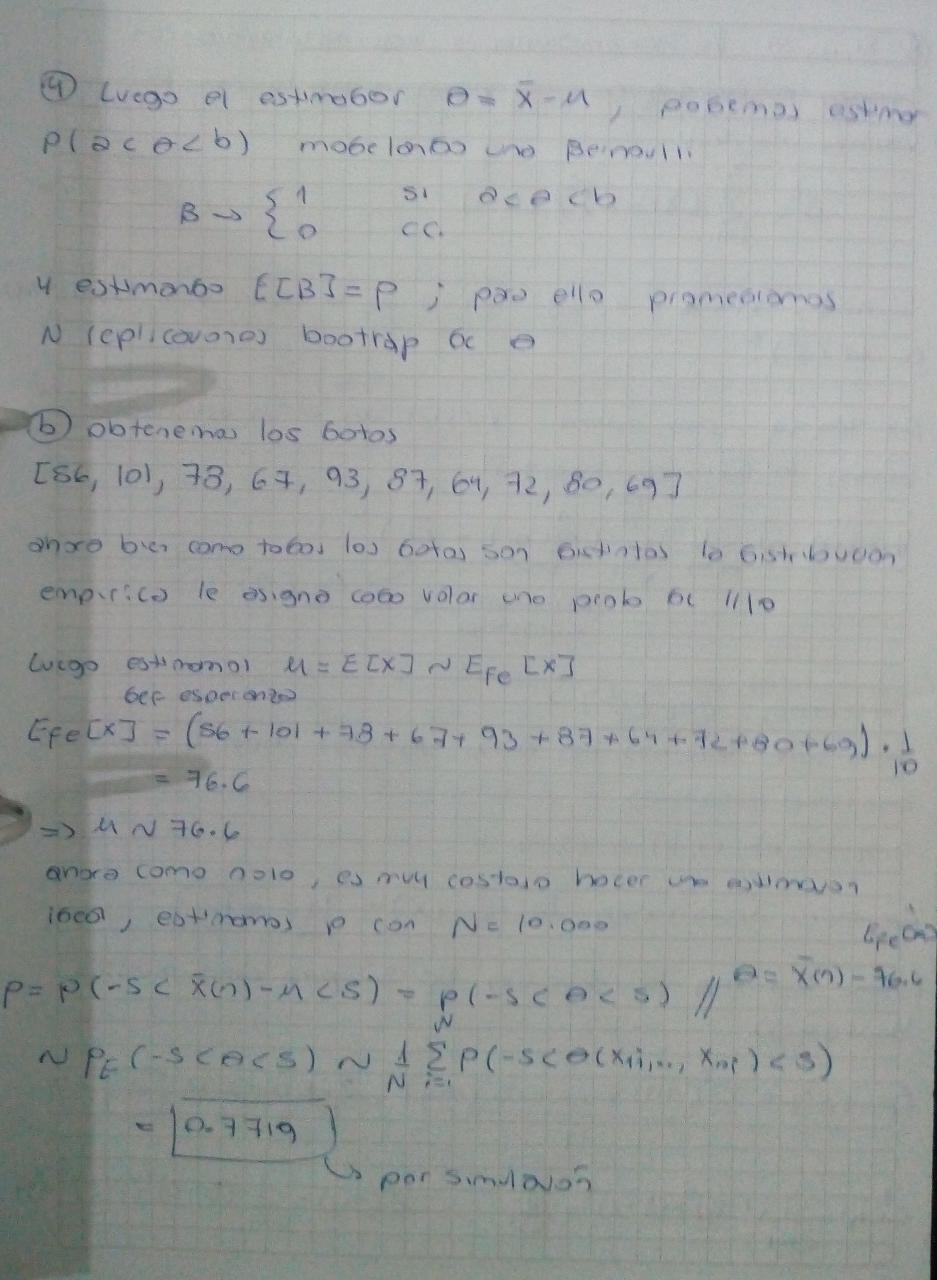 ⓐ Luego el estimador θ = x̄ - μ, podemos estimar
P(a < θ < b) modelando una Bernoulli.
B → { 1 si a < θ < b
{ 0 cc.
y estimando E[B] = p ; para ello promediamos
N replicaciones bootrap de θ
ⓑ obtenemos los datos
[56, 101, 78, 67, 93, 87, 64, 72, 80, 69]
ahora bien como todos los datos son distintos la distribucion
empirica le asigna cada valor una prob de 1/10
Luego estimamos μ = E[X] ~ E_Fe [X]
def esperanza
E_Fe[X] = (56 + 101 + 78 + 67 + 93 + 87 + 64 + 72 + 80 + 69) . 1/10
= 76.6
=> μ ~ 76.6
ahora como n=10, es muy costoso hacer una estimacion
ideal, estimamos p con N = 10.000
p = P(-5 < x̄(n) - μ < 5) = P(-5 < θ < 5) // θ = x̄(n) - 76.6
~ P_E (-5 < θ < 5) ~ 1/N Σ_{i=1}^{N} P(-5 < θ(x_{1i}, ..., x_{ni}) < 5)
= 0.7719
↳ por simulación